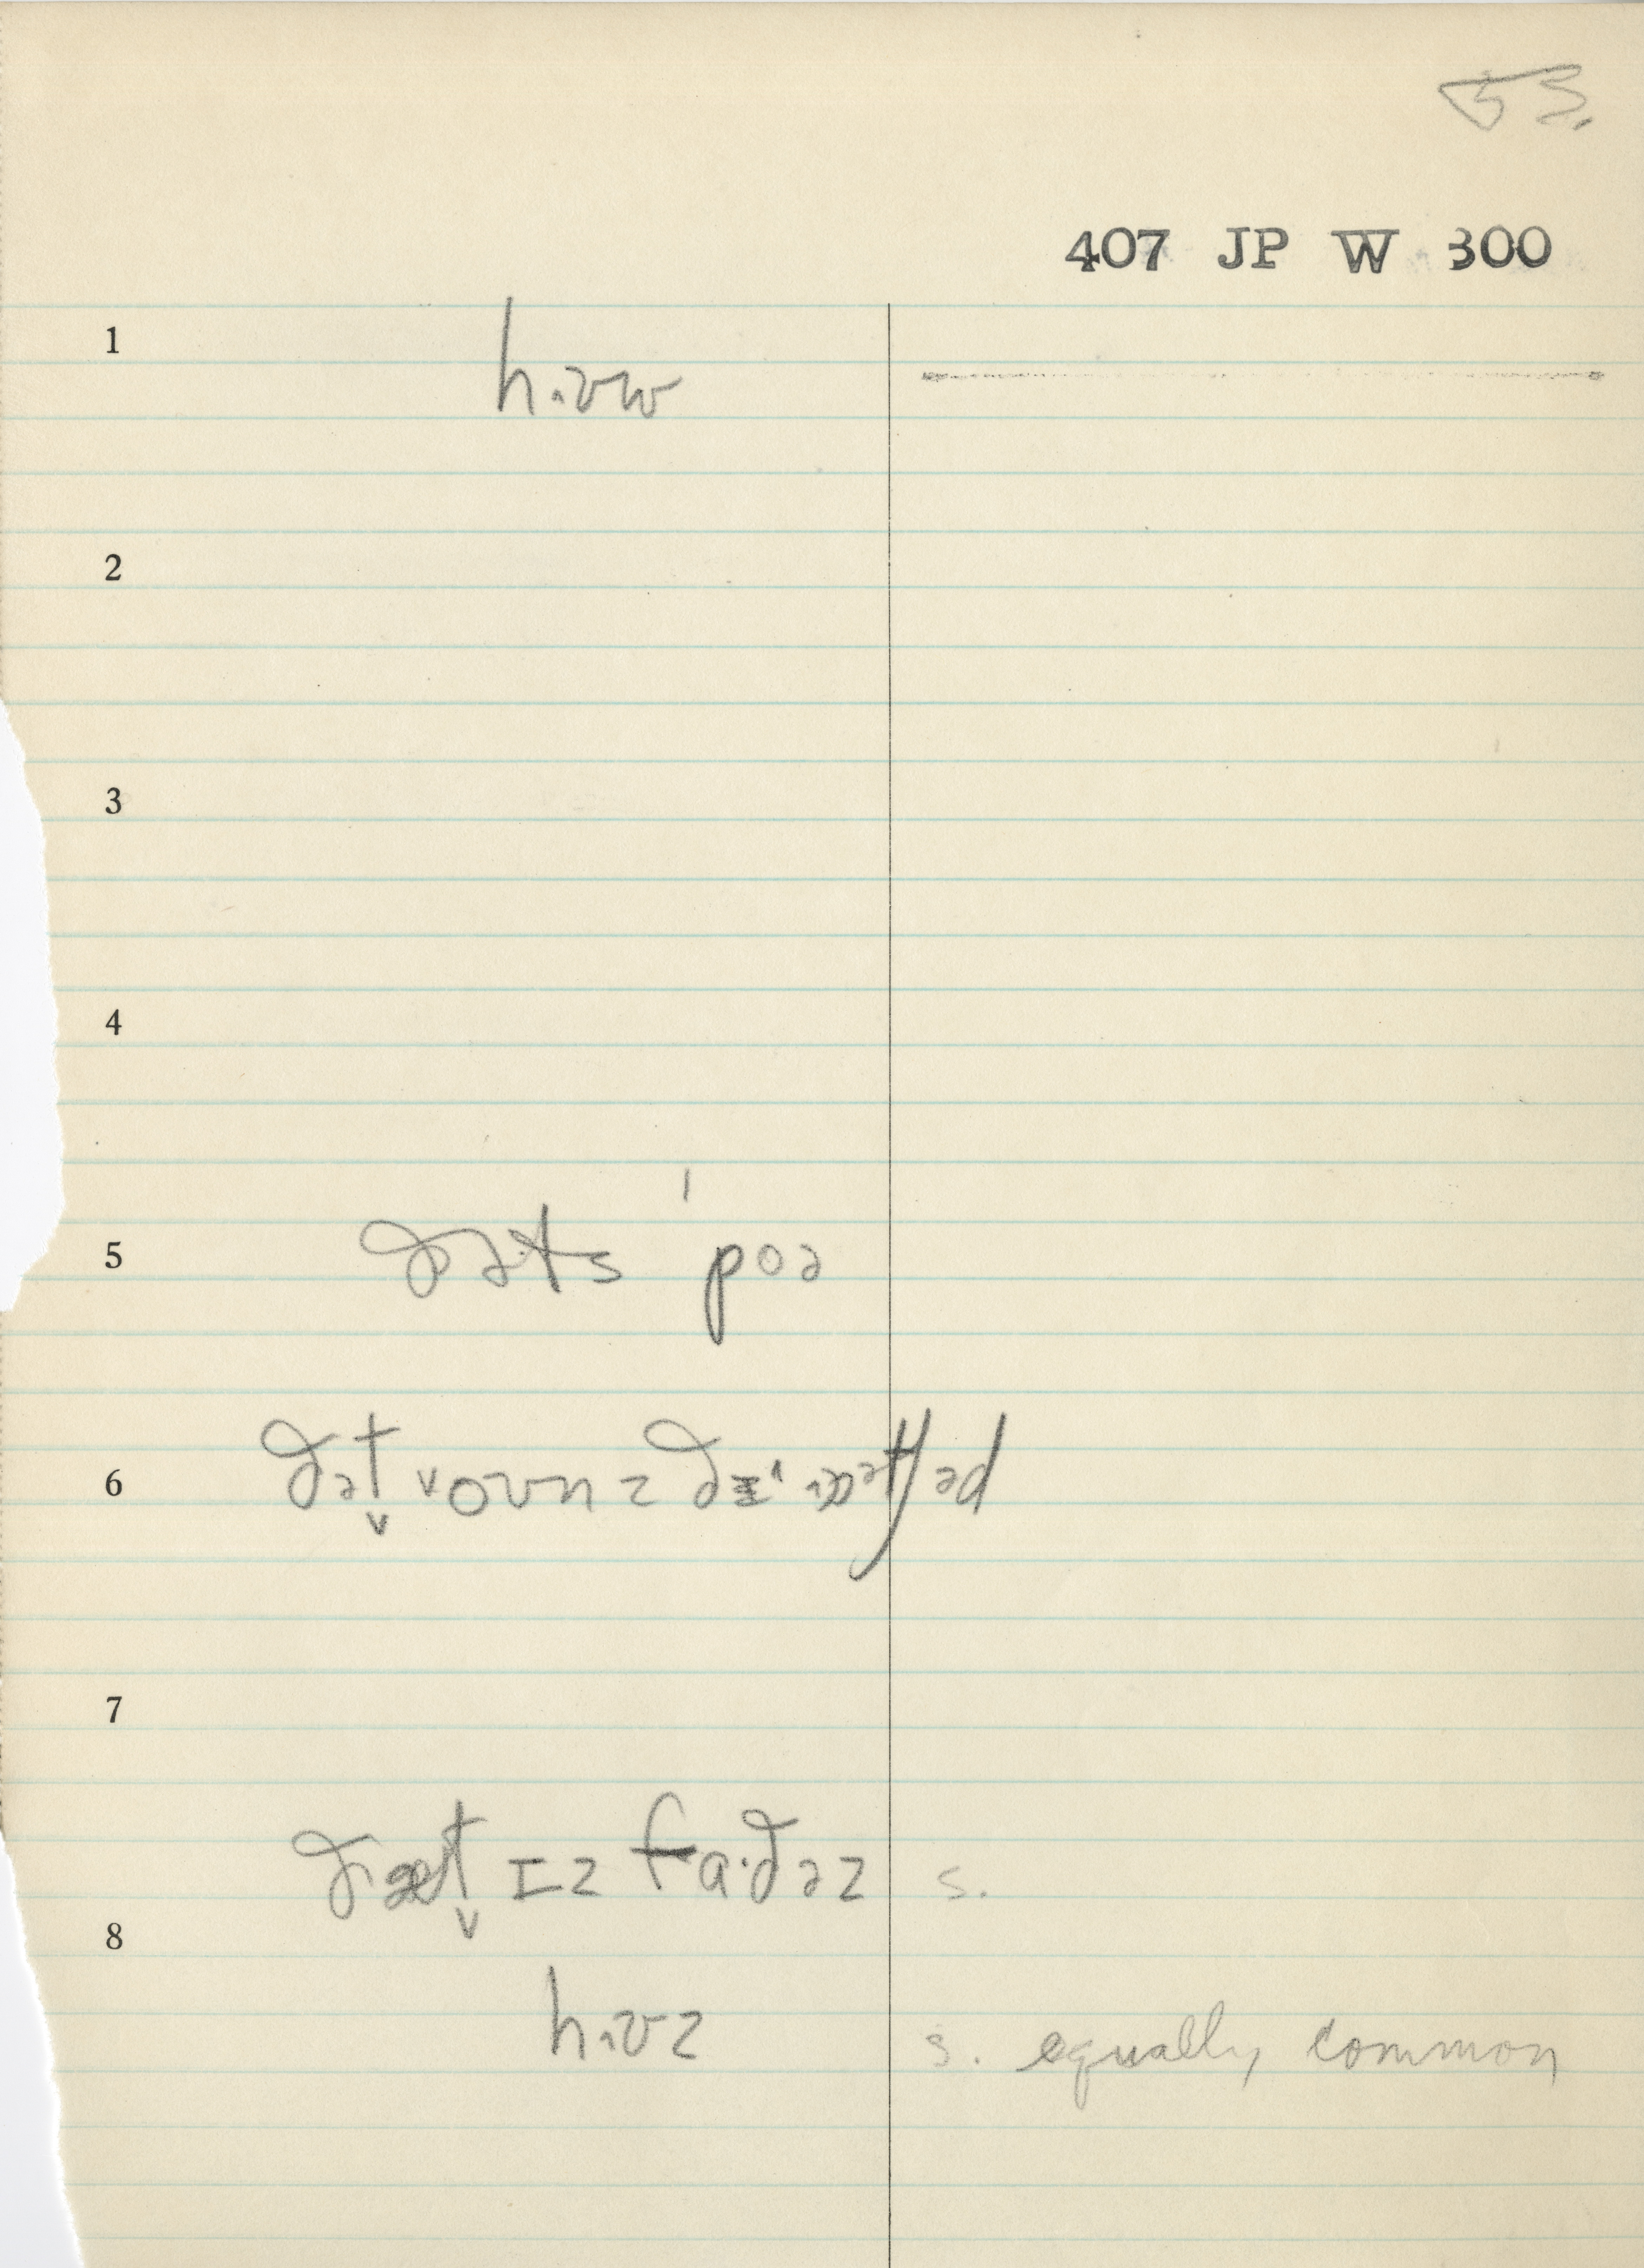 53.
407 JP W 300
1
hɪʊw
2
3
4
5 ðəts poə
6 ðət̬ oʊnz ðɪ
7
ðæt̬ ɪz fɑ·ðəz s.
8
hɪʊz s. equally common